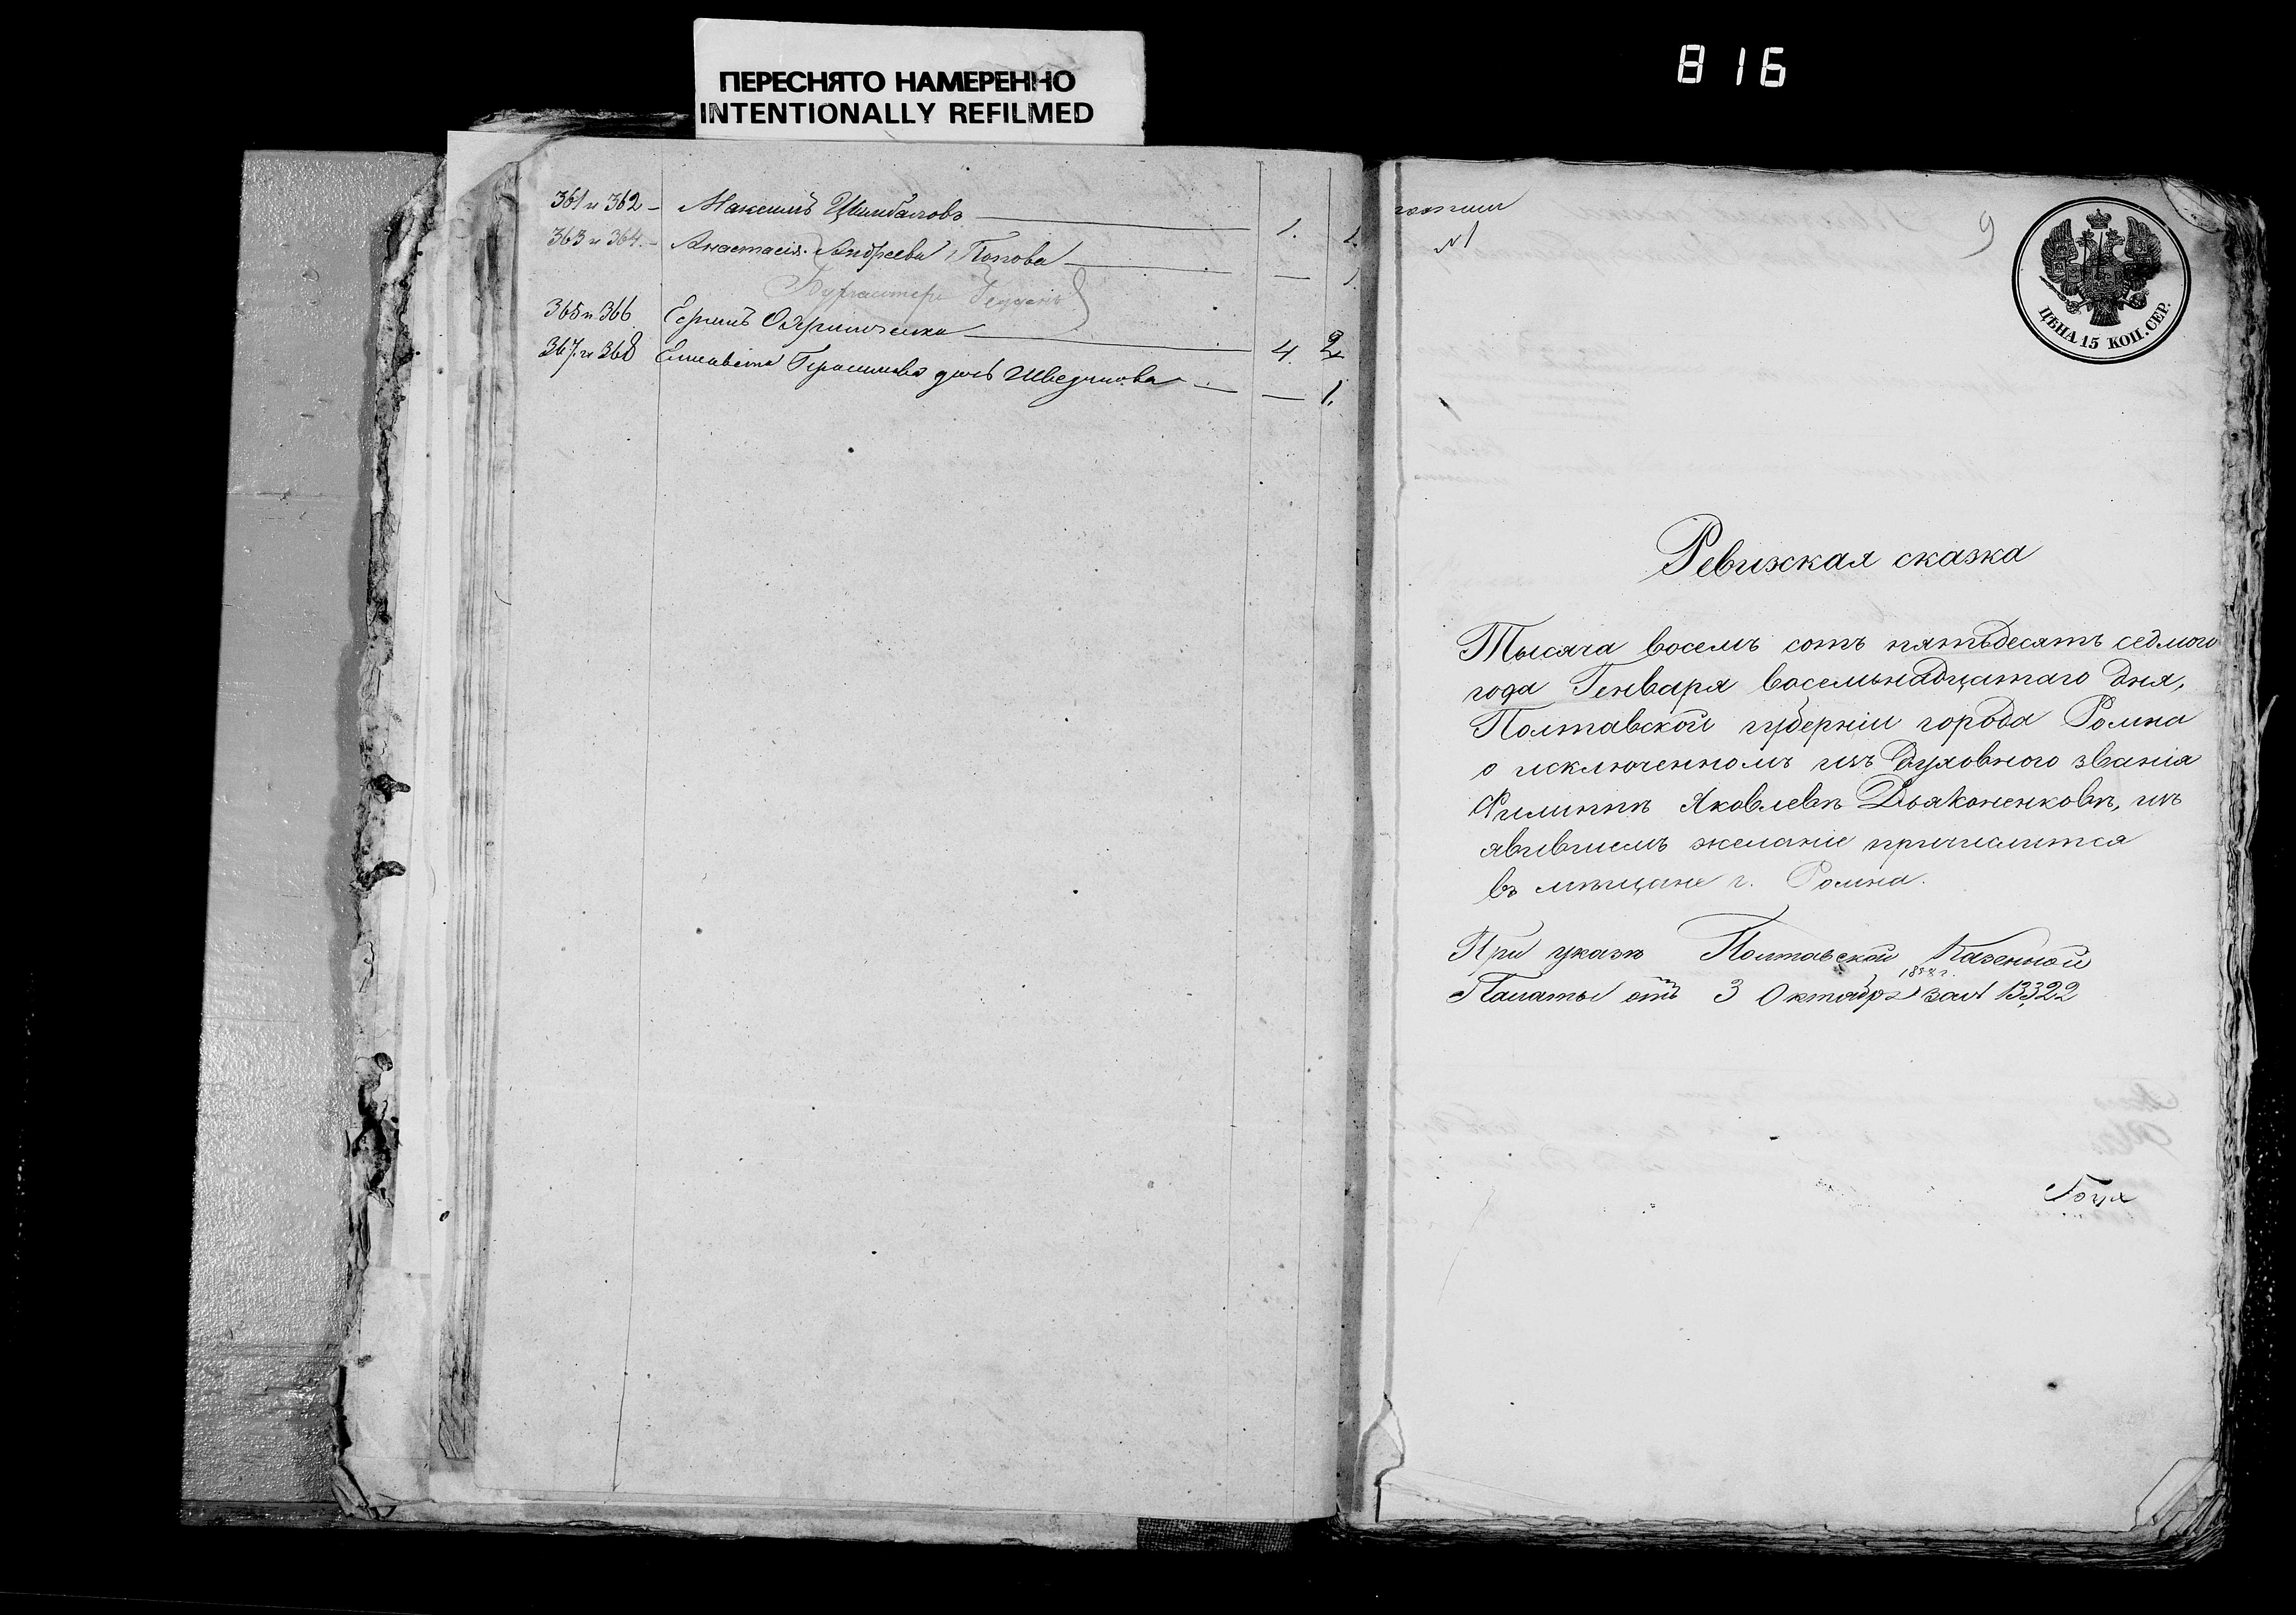 ПЕРЕСНЯТО НАМЕРЕННО
INTENTIONALLY REFILMED
816
361 и 362 - Максимъ Цимбаловъ 1. 1.
363 и 364. - Анастасія Андреева Попова — 1.
365 и 366 Ефимъ 4. 2
367. и 368 Елисавета Герасимова дочь Шведчикова — 1.
№ 1
9
ЦѢНА 15 КОП. СЕР.
Ревижская сказка
Тысяча восемъ сотъ пятьдесятъ седмого
года Генваря восемьнадцатаго дня,
Полтавской губерніи города Ромна
о исключенномъ изъ Духовного званія
Филиппѣ Яковлевѣ Дьяконенковѣ, изъ
явившемъ желаніе причислится
въ мѣщане г. Ромна.
При указѣ Полтавской Казенной
Палаты отъ 3 Октября за № 13322